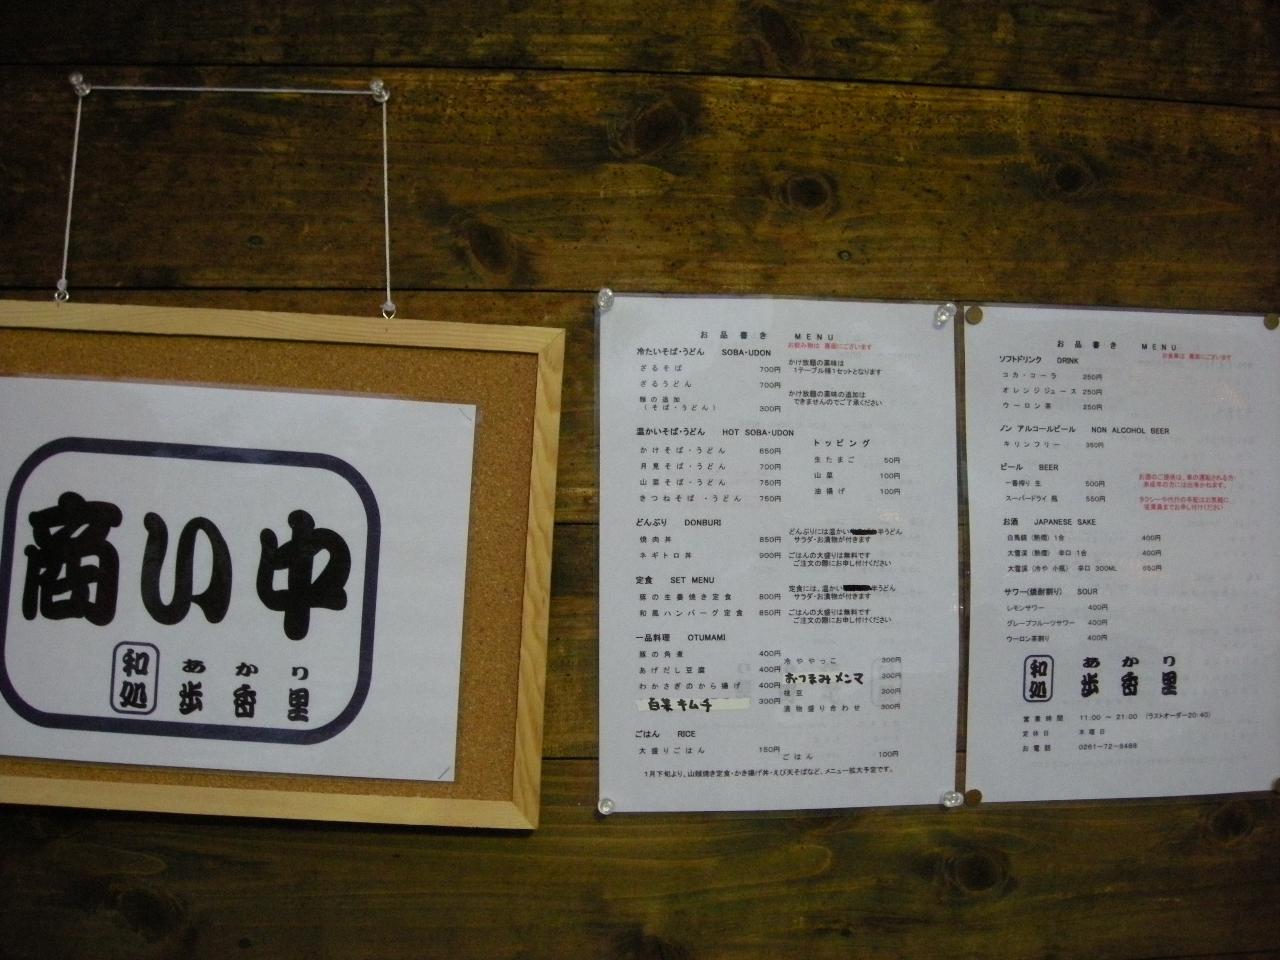 商い中
和処
あかり
歩香里
お品書き MENU
お飲み物は 裏面にございます
冷たいそば・うどん SOBA・UDON
ざるそば 700円
ざるうどん 700円
麺の追加
(そば・うどん) 300円
かけ放題の薬味は
1テーブル様1セットとなります
かけ放題の薬味の追加は
できませんのでご了承ください
温かいそば・うどん HOT SOBA・UDON
かけそば・うどん 650円
月見そば・うどん 700円
山菜そば・うどん 750円
きつねそば・うどん 750円
トッピング
生たまご 50円
山菜 100円
油揚げ 100円
どんぶり DONBURI
焼肉丼 850円
ネギトロ丼 900円
どんぶりには温かい 半うどん
サラダ・お漬物が付きます
ごはんの大盛りは無料です
ご注文の際にお申し付けください
定食 SET MENU
豚の生姜焼き定食 800円
和風ハンバーグ定食 850円
定食には、温かい 半うどん
サラダ・お漬物が付きます
ごはんの大盛りは無料です
ご注文の際にお申し付けください
一品料理 OTUMAMI
豚の角煮 400円
あげだし豆腐 400円
わかさぎのから揚げ 400円
白菜キムチ 300円
冷ややっこ 300円
おつまみメンマ 300円
枝豆 300円
漬物盛り合わせ 300円
ごはん RICE
大盛りごはん 150円
ごはん 100円
1月下旬より、山賊焼き定食・かき揚げ丼・えび天そばなど、メニュー拡大予定です。
お品書き MENU
お食事は 裏面にございます
ソフトドリンク DRINK
コカ・コーラ 250円
オレンジジュース 250円
ウーロン茶 250円
ノン アルコールビール NON ALCOHOL BEER
キリンフリー 350円
ビール BEER
一番搾り 生 500円
スーパードライ 瓶 550円
お酒のご提供は、車の運転される方
未成年の方には出来かねます。
タクシーや代行の手配はお気軽に
従業員までお申し付けください
お酒 JAPANESE SAKE
白馬錦(熱燗) 1合 400円
大雪渓(熱燗) 辛口 1合 400円
大雪渓(冷や 小瓶) 辛口 300ML 650円
サワー(焼酎割り) SOUR
レモンサワー 400円
グレープフルーツサワー 400円
ウーロン茶割り 400円
和処
あかり
歩香里
営業時間 11:00 ～ 21:00 (ラストオーダー20:40)
定休日 木曜日
お電話 0261-72-8488